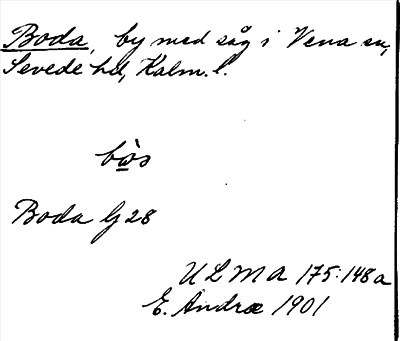 Boda, by med såg i Vena sn,
Sevede hd, Kalm. l.
Boda G 28
ULMA 175:148a
E. Andræ 1901